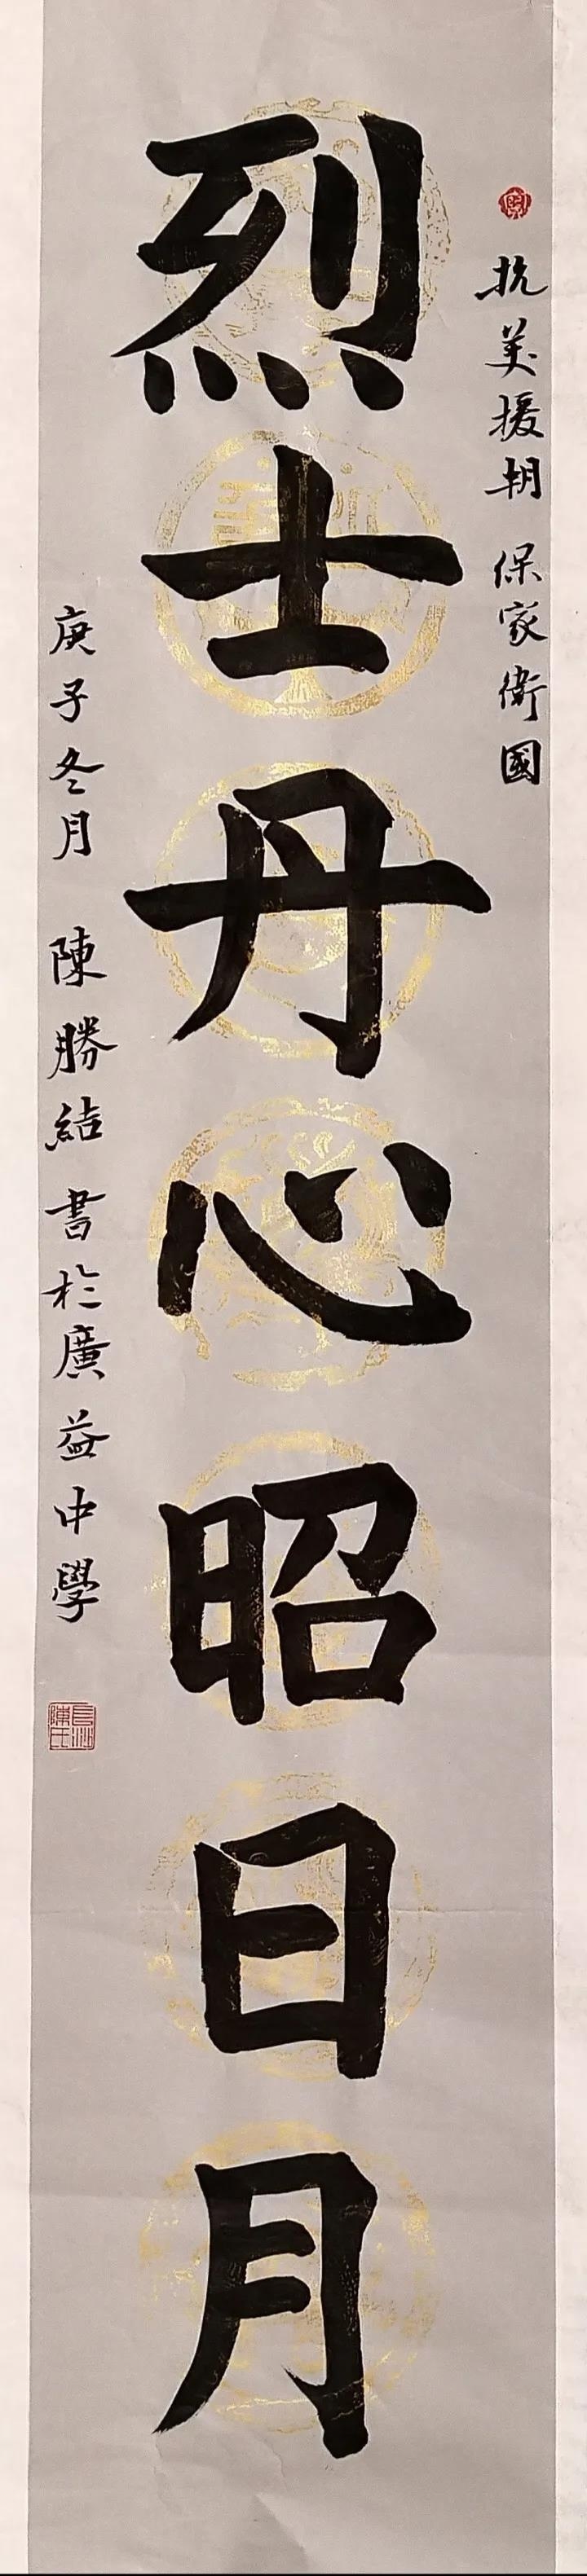 抗美援朝 保家衛國
烈士丹心昭日月
庚子冬月 陳勝結書於廣益中學